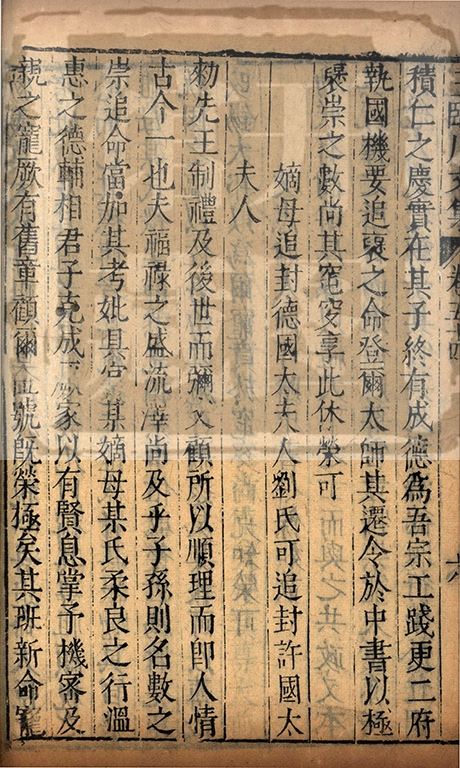 王臨川文集 卷五十四 六
積仁之慶實在其子終有成德為吾宗工踐更二府
執國機要追襃之命登爾太師其遷令於中書以極
襃崇之數尚其窀穸享此休榮可
嫡母追封德國太夫人劉氏可追封許國太
夫人
勑先王制禮及後世而彌文顧所以順理而即人情
古今一也夫福祿之盛流澤尚及乎子孫則名數之
崇追命當加其考妣具官某嫡母某氏柔良之行溫
惠之德輔相君子克成厥家以有賢息掌予機密及
親之寵厥有舊章顧爾 號既榮極矣其班新命寵